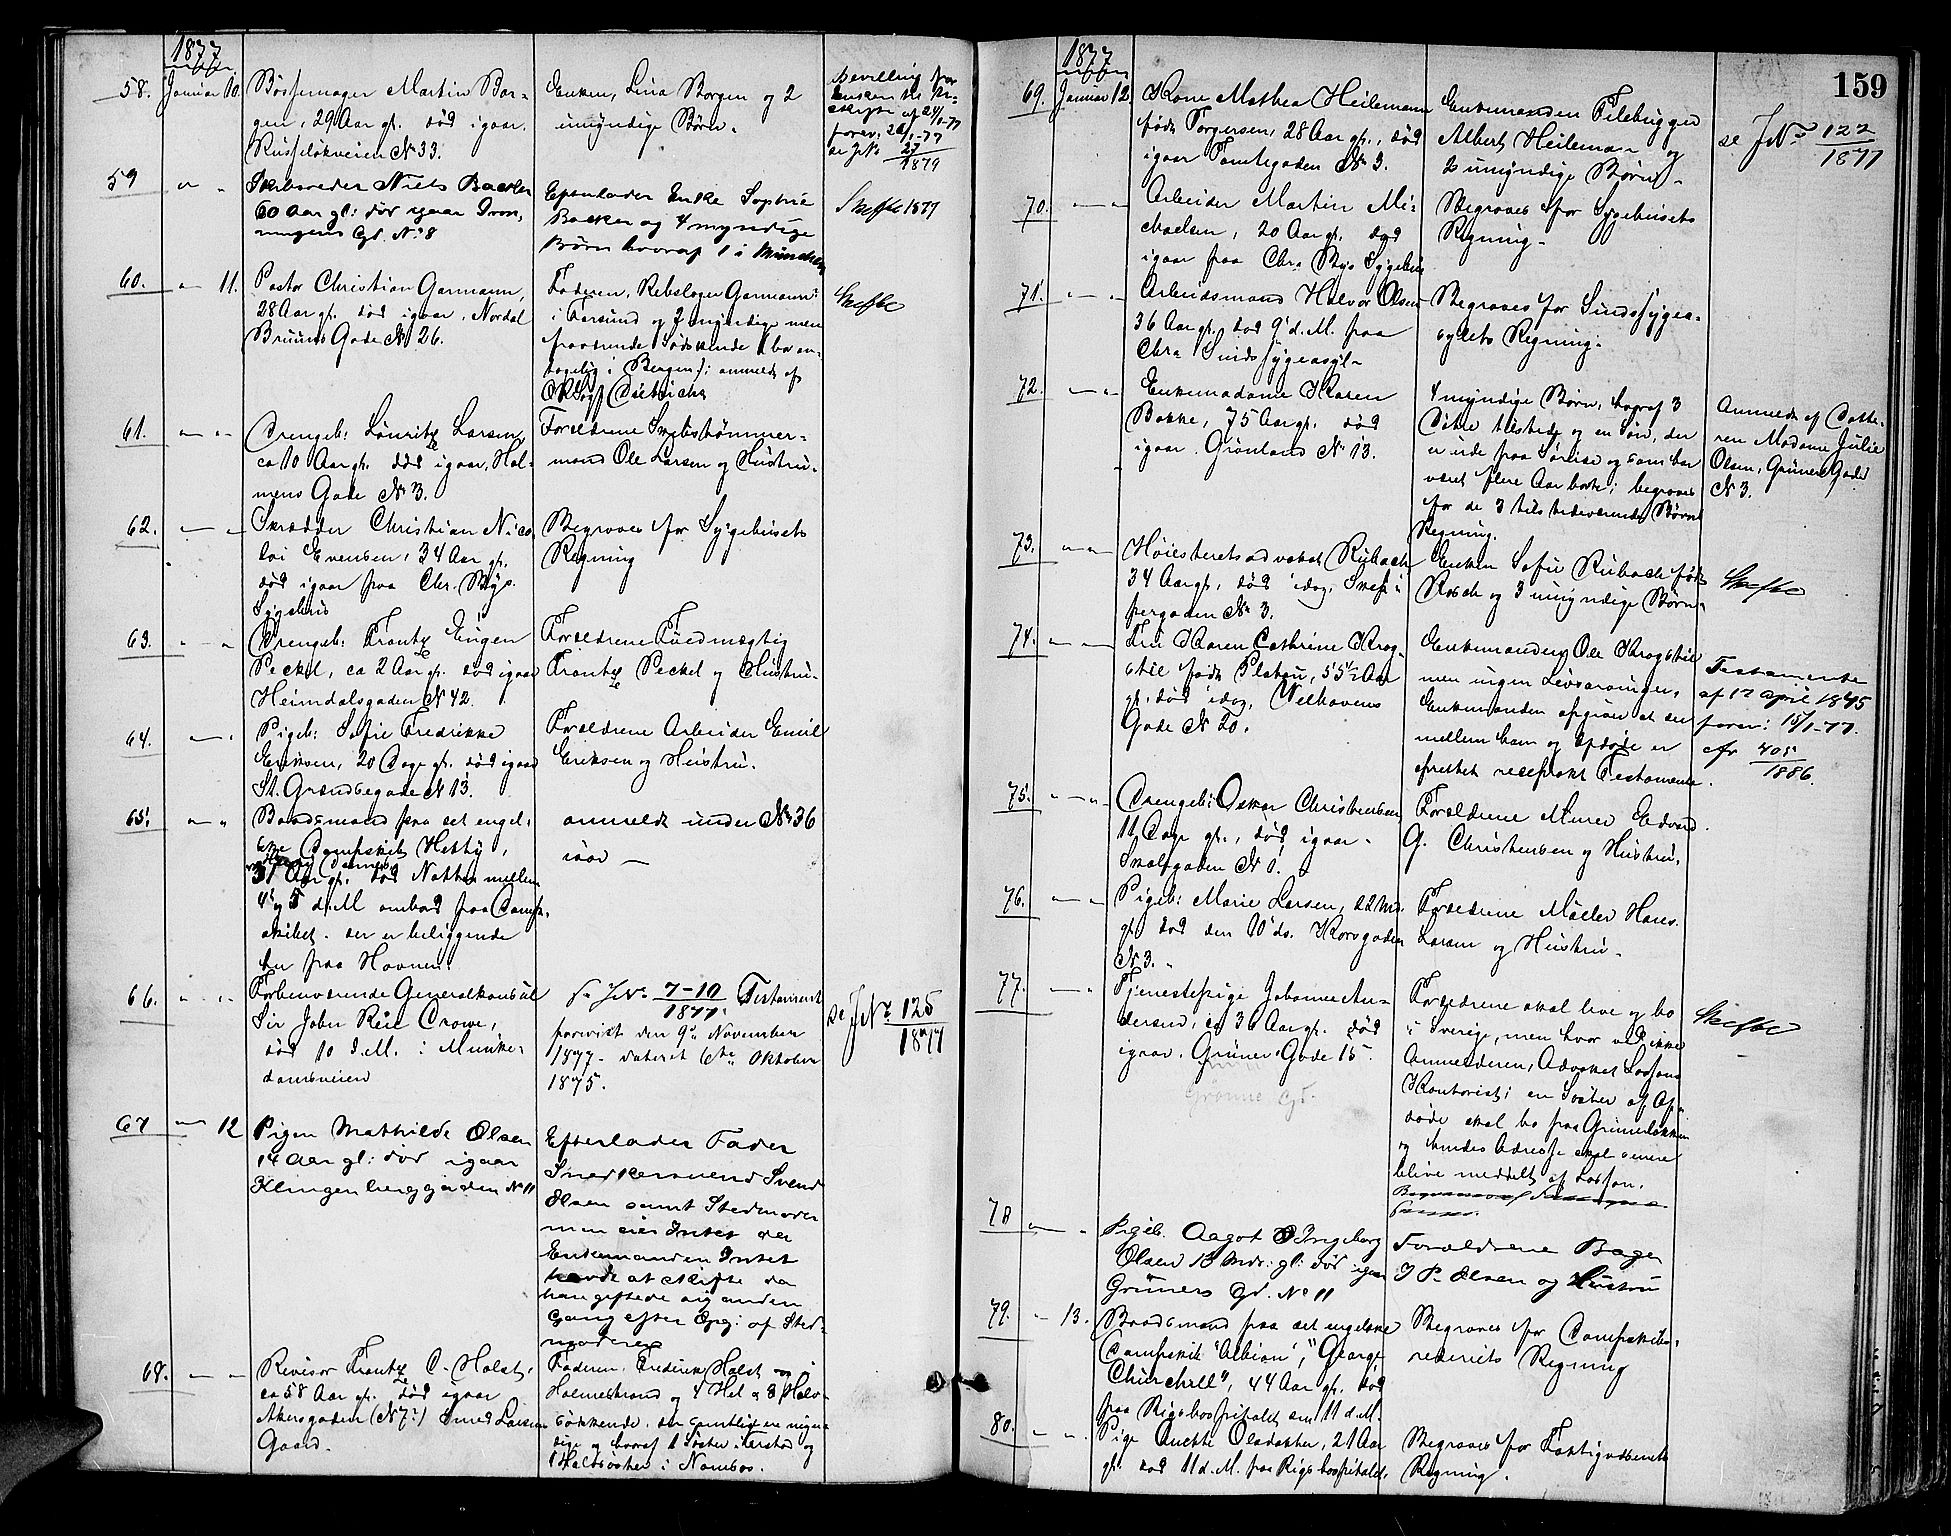 1877
58. Januar 10. Bøssemager Martin Bor-
gen, 29 Aar gl. død igaar.
Russeløkveien No 33.
Enken, Lina Borgen og 2
umyndige Børn.
Bevilling for
Enken
af 24/1-77
forev: 26/1-77
se JNo 27/1879
59 " " Skibsreder Niels Backer
60 Aar gl: død igaar Dron-
ningens Gd. No 8
Efterlader Enke Sophie
Backer og 4 myndige
Børn hvoraf 1 i München
Skifte 1877
60. " 11. Pastor Christian Garmann,
28 Aar gl. død igaar, Nordal
Bruuns Gade No 26.
Faderen, Rebslager Garmann
i Farsund og 7 myndige men
fraværende Sødskende (bo an-
tagelig i Bergen): anmeldt af
O.R.Sagf Dietrichs
Skifte
61. " " Drengeb: Lauritz Larsen,
ca 10 Aar gl. død igaar, Hol-
mens Gade No 3.
Forældrene Skibstømmer-
mand Ole Larsen og Hustru.
62. " " Skrædder Christian Nico-
lai Evensen, 34 Aar gl.
død igaar paa Chr. Bys
Sygehus
Begraves for Sygehusets
Regning
63. " " Drengeb: Frantz Eugen
Peckel, ca 2 Aar gl. død igaar
Heimdalsgaden No 42.
Forældrene Fuldmægtig
Frantz Peckel og Hustru.
64. " " Pigeb: Sofie Fredrikke
Eriksen, 20 Dage gl. død igaar
St. Grændsegade No 13.
Forældrene Arbeider Emil
Eriksen og Hustru.
65. " " Baadsmand paa det engel-
ske Dampskib Hetty,
31 Aar gl. død Natten mellem
4 og 5 d.M. ombord paa Damp-
skibet. der er beliggende
her paa Havnen.
anmeldt under No 36
iaar —
66. " " Forhenværende Generalkonsul
Sir John Rice Crowe,
død 10 d.M. i Munke-
damsveien
se JNo 7-10/1877. Testament
forevist den 9de November
1877 - dateret 6te Oktober
1875.
se JNo 125/1877
67 " 12 Pigen Mathilde Olsen
14 Aar gl: død igaar
Klingenberggaden No 11
Efterlader Fader
Snedkersvend Svend
Olsen samt Stedmoder
men eier Intet da
Enkemanden Intet
havde at skifte da
han giftede sig anden
Gang efter Opg: af Sted-
moderen
68. " " Revisor Frantz C. Holst,
ca 58 Aar gl. død igaar
Akersgaden (No 7?) Smed Larsens
Gaard.
Faderen, Fredrik Holst
Holmestrand og 4 Hel & 8 Halv-
søskende, der samtlige ere myn-
dige og hvoraf 1 Søster i og
1 Halvsøster i Namsos.
159
1877
69. Januar 12. Kone Mathea Heilemann
født Torgersen, 28 Aar gl., død
igaar Tomtegaden No 3.
Enkemanden Filehugger
Albert Heileman og
2 umyndige Børn.
se JNo 122/1877
70. " " Arbeider Martin Mi-
chaelsen, 20 Aar gl. død
igaar paa Chra Bys Sygehus
Begraves for Sygehusets
Regning.
71. " " Arbeidsmand Halvor Olsen
36 Aar gl. død 9 d.M. paa
Chra Sindssygeasyl.
Begraves for Sindssygea-
sylets Regning.
72. " " Enkemadame Karen
Bakke, 75 Aar gl. død
igaar. Grønland No 13.
4 myndige Børn, hvoraf 3
Døtre tilstede og en Søn, der
er ude paa Søreise og som har
været flere Aar borte; begraves
for de 3 tilstedeværende Børns
Regning.
Anmeldt af Datte-
ren Madame Julie
Olsen, Grüners Gade
No 3.
73. " " Høiesteretsadvokat Rubach
34 Aar gl., død idag, Skip-
pergaden No 3.
Enken Sofie Rubach født
Rosch og 3 umyndige Børn.
Skifte
74. " " Fru Karen Cathrine Krog-
stil født Platou, 55½ Aar
gl, død idag, Welhavens
Gade No 20.
Enkemanden Ole Krogstil
men ingen Livsarvinger,
Enkemanden opgiver at der
mellem ham og Afdøde er
oprettet reciprokt Testamente.
Testamente
af 12 April 1845
forev: 15/1-77.
cfr 405/1886.
75. " " Drengeb: Oskar Christensen
11 Dage gl., død igaar.
Smalgaden No 1.
Forældrene Murer Edvard
G. Christensen og Hustru.
76. " " Pigeb: Marie Larsen, 22 Md.
gl. død den 10 ds. Korsgaden
No 3.
Forældrene Møller Hans
Larsen og Hustru.
77. " " Tjenestepige Johanne An-
dersen, ca 36 Aar gl. død
igaar. Grüners Gade 15.
Grønne Gd.
Forældrene skal leve og bo
i Sverige, men hvor ved ikke
Anmelderen, Advokat Lassons
Kontorist; en Søster af Af-
døde skal bo paa Grünerløkken
og hendes Adresse skal senere
blive meddelt af Lasson.
Skifte
78 " " Pigeb. Aagot Ingeborg
Olsen 13 Mdr: gl: død igaar
Grüners Gd. No 11
Forældrene Bager
J P Olsen og Hustru
79. " 13. Baadsmand paa det engelske
Dampskib "Albion", "George
Churchill", 44 Aar gl. død
paa Rigshospitalet den 11 d.M.
Begraves for Dampskibs-
rederiets Regning
80. " " Pige Anette Olsdatter, 21 Aar
gl. død 11 d.M. paa Rigshospitalet.
Begraves for Fattigvæsenets
Regning.